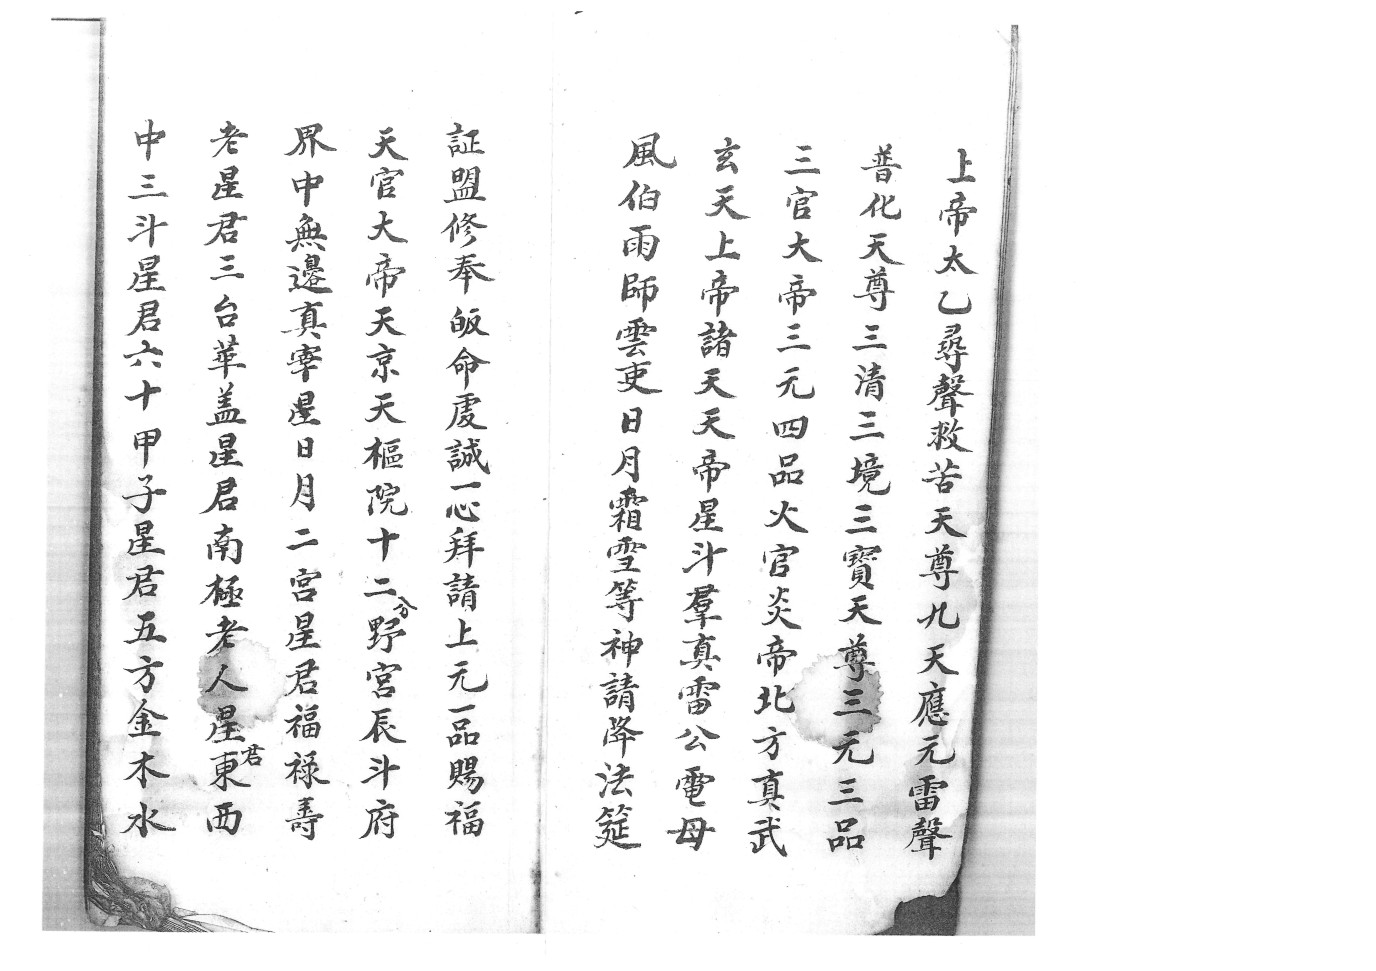 上帝太乙尋聲救苦天尊九天應元雷聲
普化天尊三清三境三寶天尊三元三品
三官大帝三元四品火官炎帝北方真武
玄天上帝諸天天帝星斗羣真雷公電母
風伯雨師雲吏日月霜雪等神請降法筵
証盟修奉皈命虔誠一心拜請上元一品賜福
天官大帝天京天樞院十二分野宮辰斗府
界中無邊真宰星日月二宮星君福祿壽
老星君三台華盖星君南極老人星君東西
中三斗星君六十甲子星君五方金木水